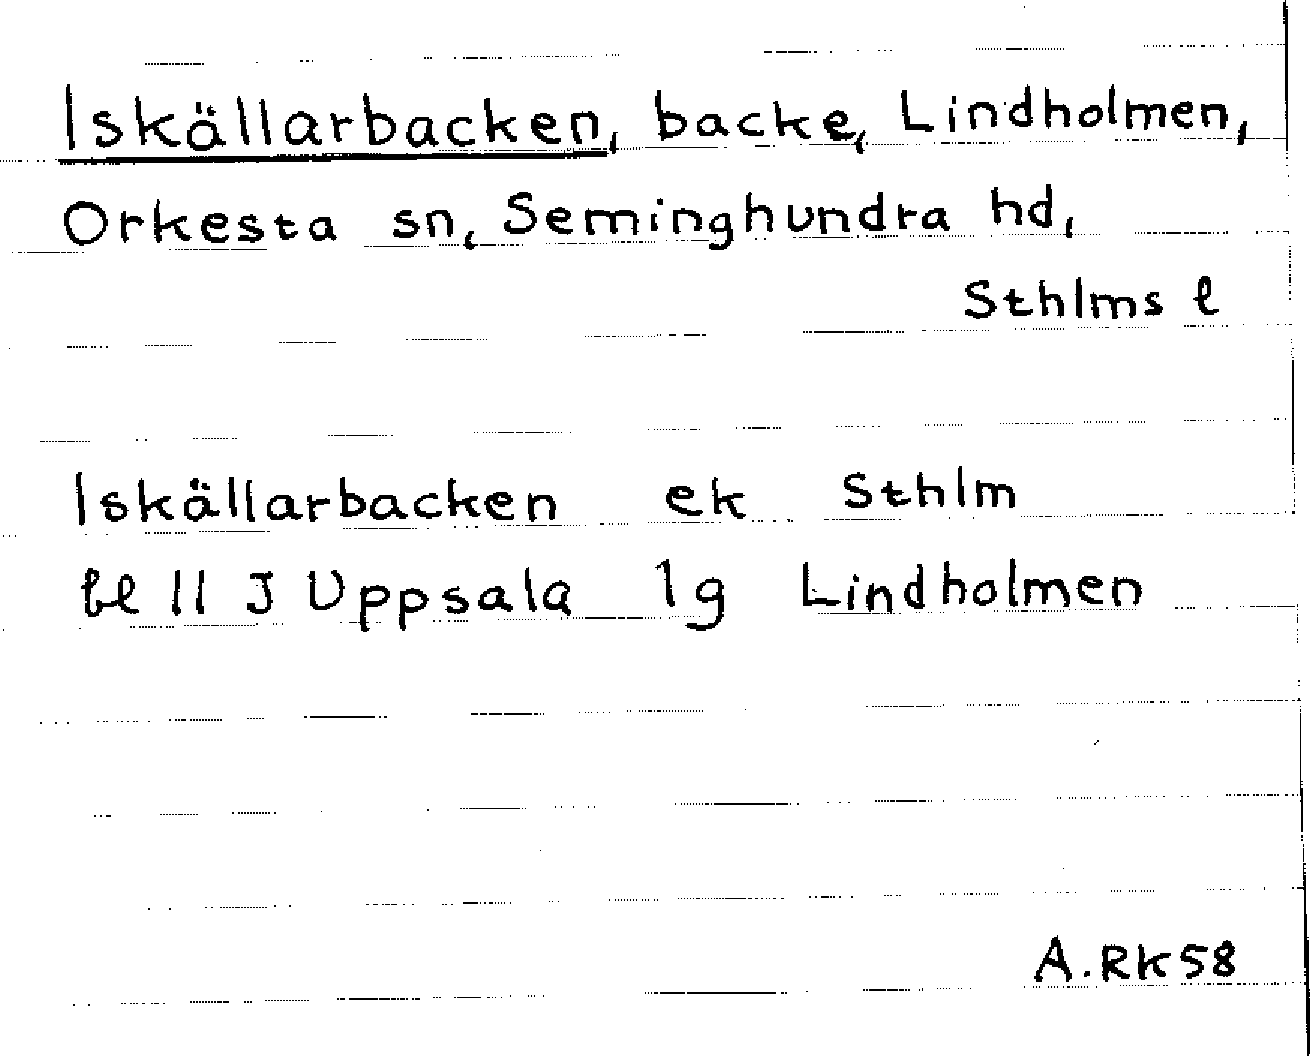 Iskällarbacken, backe, Lindholmen,
Orkesta sn, Seminghundra hd,
Sthlms l
Iskällarbacken ek Sthlm
bl II J Uppsala 1g Lindholmen
A.RK58